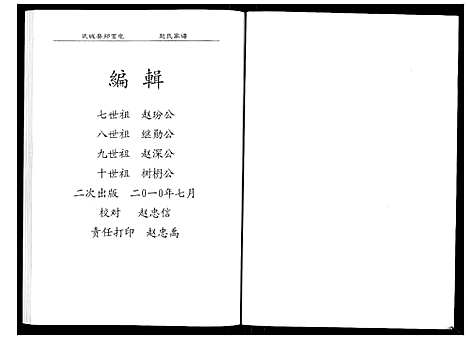 武城县郑官屯 赵氏宗谱
編輯
七世祖 赵玢公
八世祖 继勋公
九世祖 赵深公
十世祖 树桐公
二次出版 二0一0年七月
校对 赵忠信
责任打印 赵忠禹